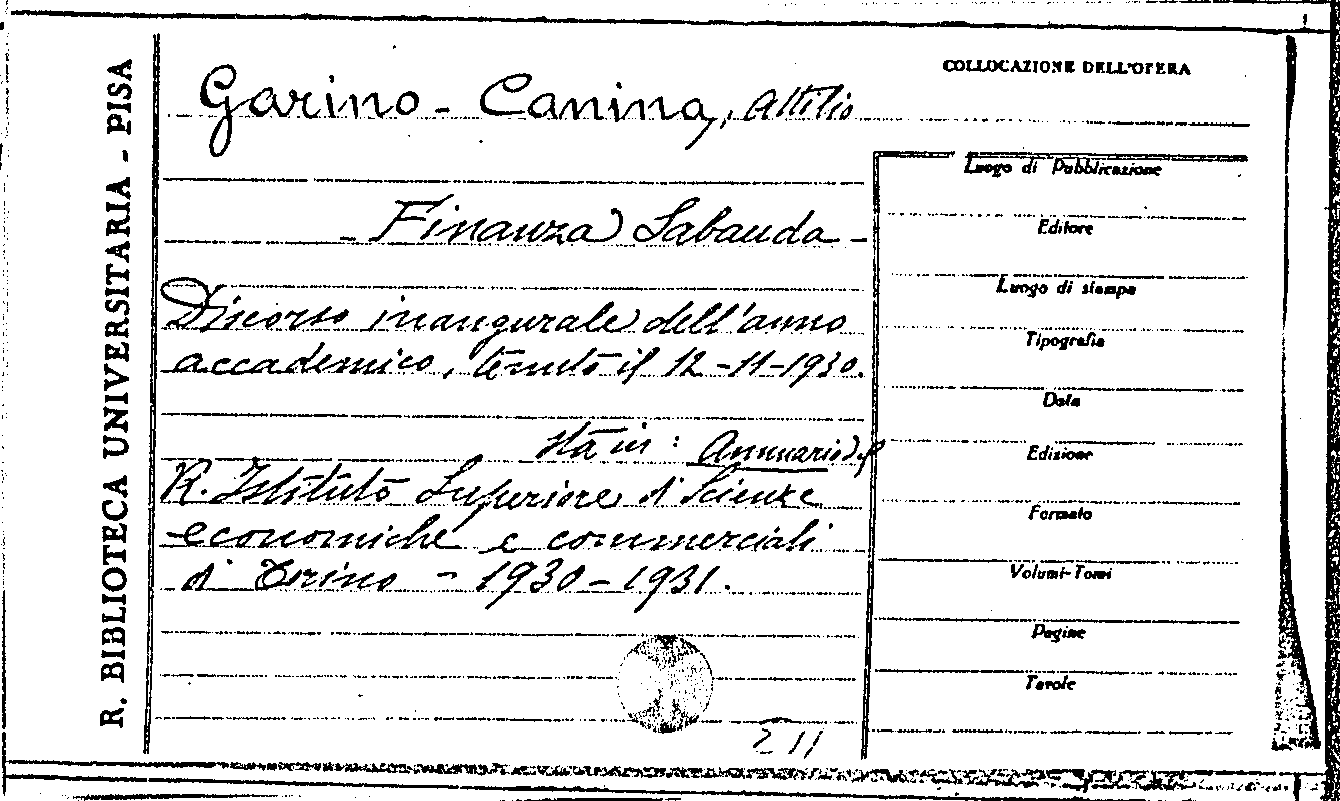 R. BIBLIOTECA UNIVERSITARIA - PISA
COLLOCAZIONE DELL'OPERA
Garino - Canina, Attilio
- Finanza Sabauda -
Discorso inaugurale dell'anno
accademico, tenuto il 12-11-1930.
sta in: Annuario del
R. Istituto Superiore di Scienze
economiche e commerciali
di Torino - 1930-1931.
Luogo di Pubblicazione
Editore
Luogo di stampa
Tipografia
Data
Edizione
Formato
Volumi-Tomi
Pagine
Tavole